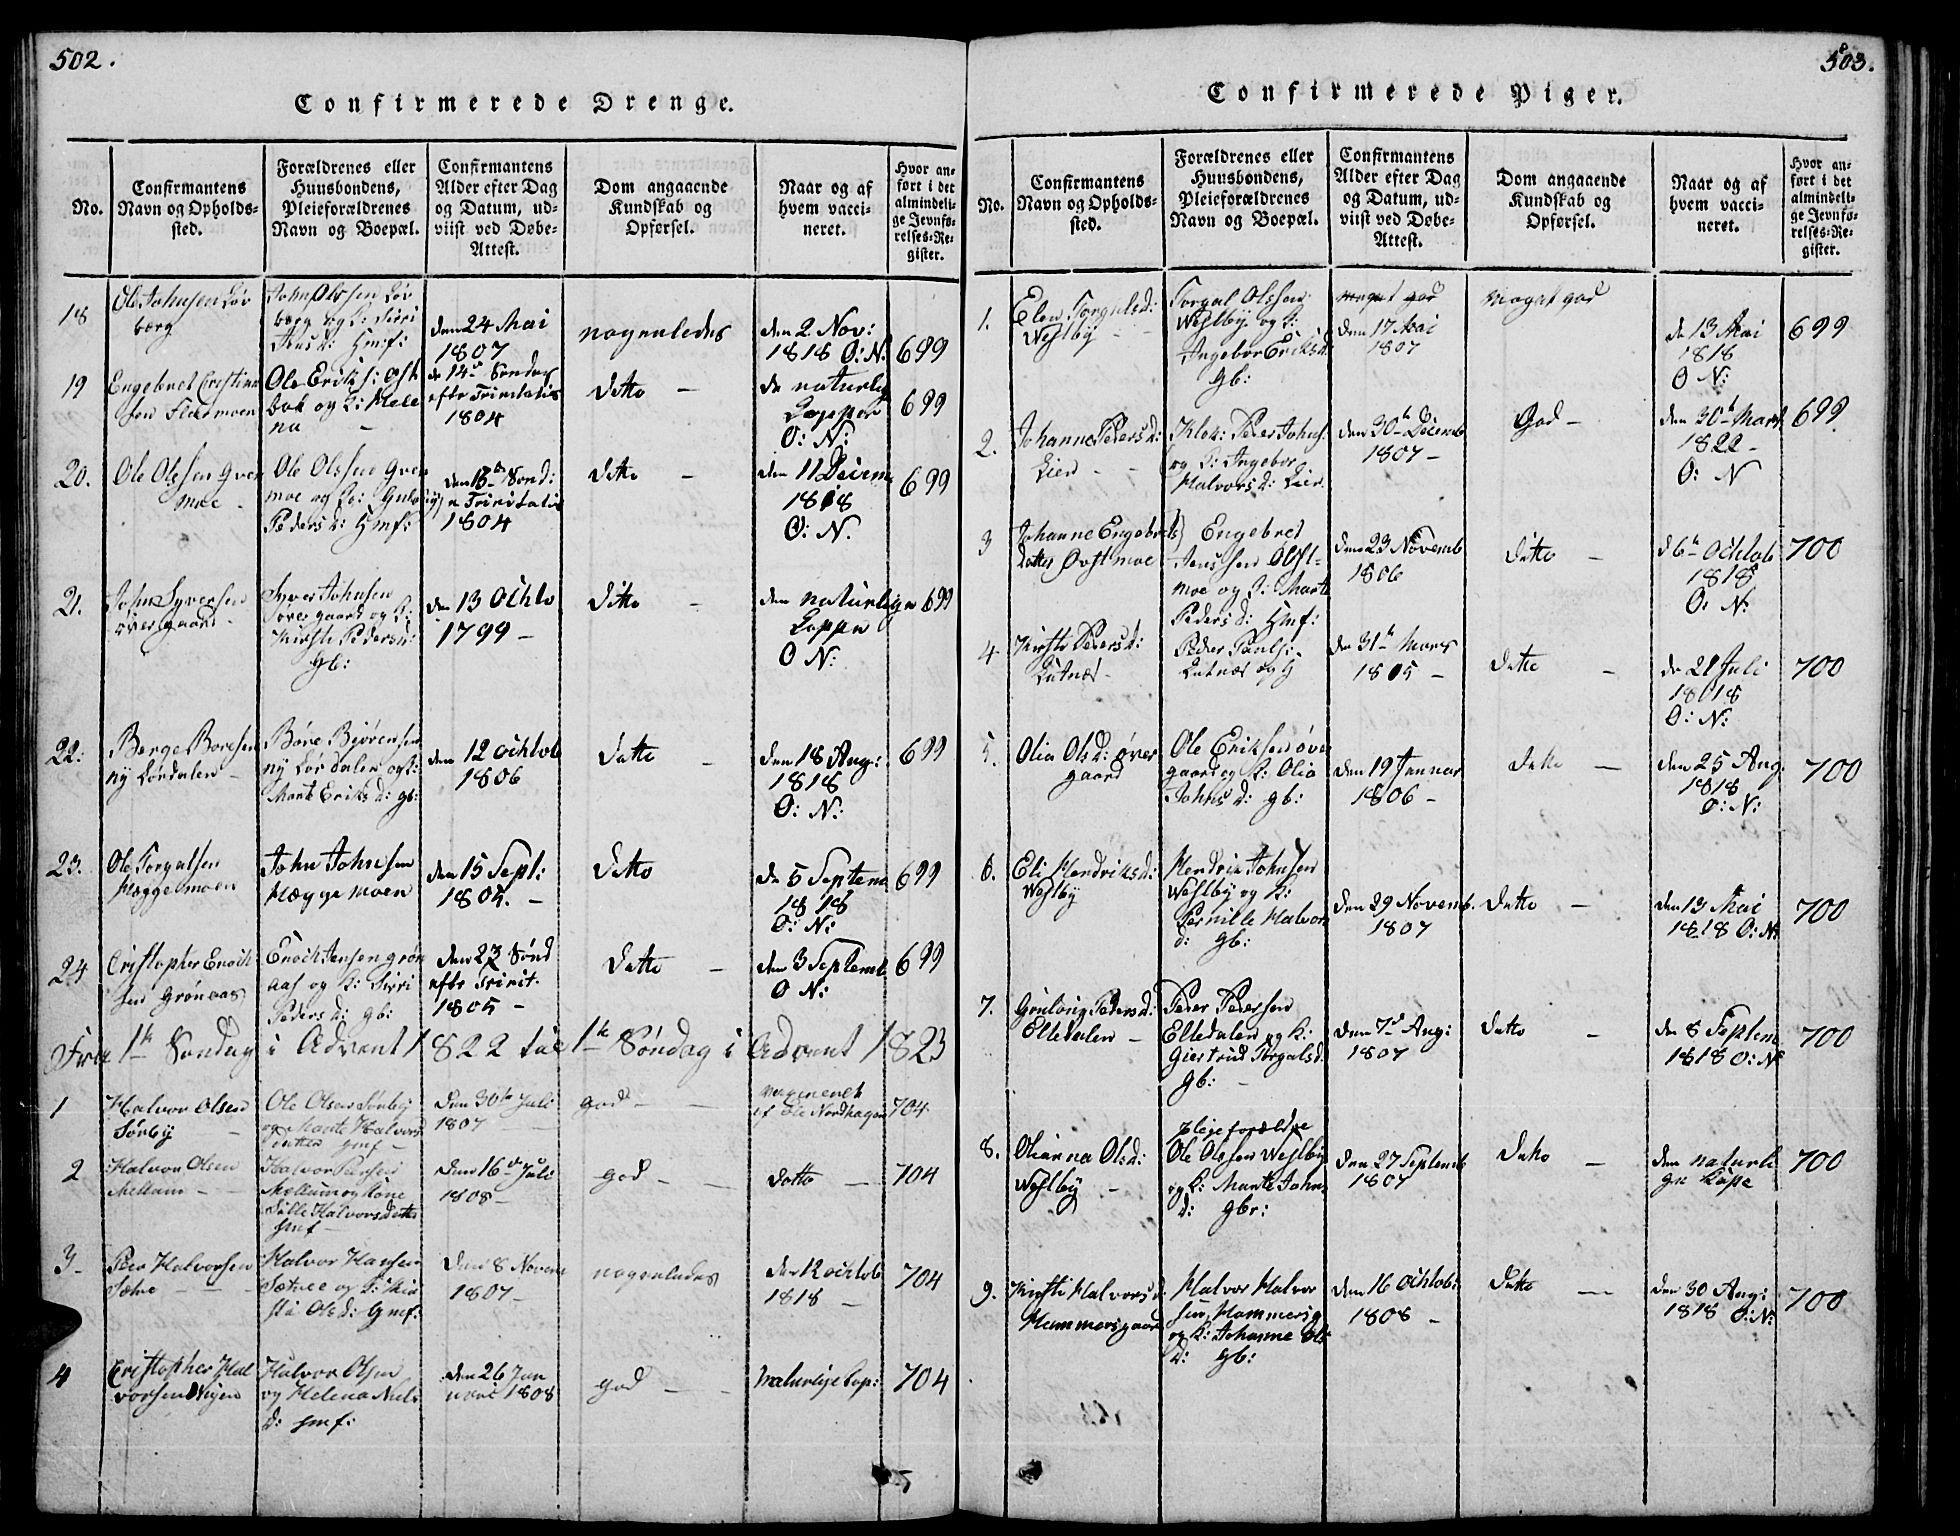 502.
Confirmerede Drenge.
No.
Confirmantens
Navn og Opholds-
sted.
Forældrenes eller
Huusbondens,
Pleieforældrenes
Navn og Boepæl.
Confirmantens
Alder efter Dag
og Datum, ud-
viist ved Døbe-
Attest.
Dom angaaende
Kundskab og
Opførsel.
Naar og af
hvem vacci-
neret.
Hvor an-
ført i det
almindeli-
ge Jevnfø-
relses-Re-
gister.
18
Ole Johnsen Lør
berg
John Olssen Lør
berg og K: Sirri
Jensd: Hmf:
den 24 Mai
1807
nogenledes
den 2 Nov:
1818 O: N:
699
19
Engebret Cristian
sen Flermoen
Ole Eriks: Ost
bak og K: Male
na
d 14de Søndag
efter Trinitatis
1804
ditto –
de naturlig
Kopper
O: N:
699
20.
Ole Olssen Qver
moe
Ole Olssen Qver
moe og K: Gulov
Peders d: Hmf:
den 15de Sønd:
Trinitatis
1804
ditto –
den 11 Decem
1818
O: N.
699
21.
John Syversen
øvergaard
Syver Johnsen
øvergaard og K:
Kirsti Pedersd:
Gb:
den 13 Ochto
1799 –
ditto –
den naturlige
Koppe
O N:
699
22.
Berge Boresen
ny Lørdalen –
Børe Bjørensen
ny Lørdalen og K:
Marte Eriksd: gb:
den 12 ochtob
1806
ditto –
den 18 Aug:
1818
O: N:
699
23.
Ole Torgalsen
Heggemoen
John Johnsen
Hæggemoen
den 15 Sept:
1805. –
ditto
de 5 Septem
1818
O: N:
699
24
Cristopher Enoch
sen Grønaas
Enoch Jensen grøn
aas og K: Sirri
Peders d: gb:
den 23 Sønd
efter Trinit.
1805 –
ditto –
den 3 Septemb
O N:
699
Fra 1te Søndag i Advent 1822 til 1te Søndag i Advent 1823
1
Halvor Olsen
Sørby
Ole Olsen Sørby
og Marte Halvors
datter Hmf –
Den 30te Juli
1807
god – –
vaccineret
af Ole Nordhagen
704
2
Halvor Olsen
Mellum – –
Halvor
Mellum og Kone
Halvorsdatter
Hmf –
Den 16de Juli
1808 –
god – –
ditto –
704
3 –
Peer Halvorsen
Sætre – –
Halvor Hansen
Sætree og K: Kir
sti Olsd: Gmf:
Den 8 Novem
1807 –
nogenledes
den 12 ochtob
1818 –
704
4
Cristopher Hal
vorsen Vigen
Halvor Olsen
og Helena Niels
d: Hmf:
den 26 Jan
uari 1808
god – –
naturlige Kop:
704
503.
Confirmerede Piger.
No.
Confirmantens
Navn og Opholds-
sted.
Forældrenes eller
Huusbondens,
Pleieforældrenes
Navn og Boepæl.
Confirmantens
Alder efter Dag
og Datum, ud-
viist ved Døbe-
Attest.
Dom angaaende
Kundskab og
Opførsel.
Naar og af
hvem vacci-
neret.
Hvor an-
ført i det
almindeli-
ge Jevnfø-
relses-Re-
gister.
1.
Elen Torgalsd:
Westby –
Torgal Olssen
Westby og K:
Ingebor Eriksd:
Gb:
meget god
den 17 Mai
1807
Meget god
de 13 Mai
1818
O N:
699
2.
Johanne Pedersd:
Lien – –
Klok: Peder Johns:
og K: Ingebor
Halvorsd: Lien
den 30te Decemb
1807 –
God –
den 30te Marts
1822 –
O: N
699
3
Johanne Engebrets
datter Øvstmoe
Engebret
Jenssen Øvst-
moe og K: Marte
Pedersd: Hmf:
den 23 Novemb
1806
ditto –
d 6te Ochtob
1818
O: N:
700
4
Kirsti Pedersd:
Lutnæs –
Peder Pauls:
Lutnæs og
den 31te Mars
1805 –
ditto –
de 21 Juli
1818
O: N:
700
5.
Olia Olsd: øver
gaard
Ole Eriksen øver
gaard og K: Olia
Johnsd: gb:
den 19 Januar
1806 –
ditto –
den 25 Aug
1818
O: N:
700
6.
Eli Hendriksd:
Westby
Hendrik Johnsen
Westby og K:
Pernille Halvors
d: gb:
den 29 Novemb.
1807
ditto –
den 13 Mai
1818 O: N:
700
7.
Gulovig Pedersd:
Elledalen –
Peder Pedersen
Elledalen og K:
Giertrud Torgalsd:
gb: –
den 7de Aug:
1807
ditto –
de 8 Septem
1818 O: N:
700
8.
Olianna Olsd:
Westby –
Pleieforældre
Ole Olssen Westby
og K: Marte Johns
d: gbr:
den 27 Septemb
1807
ditto –
den naturli
ge Kopper
700
9.
Kirsti Halvorsd:
Hammersgaard
Halvor Halvor
sen Hammersg
og K: Johanne Ols
d: gb:
den 16 Ochtob:
1808 –
ditto –
den 30 Aug:
1818 O: N:
700